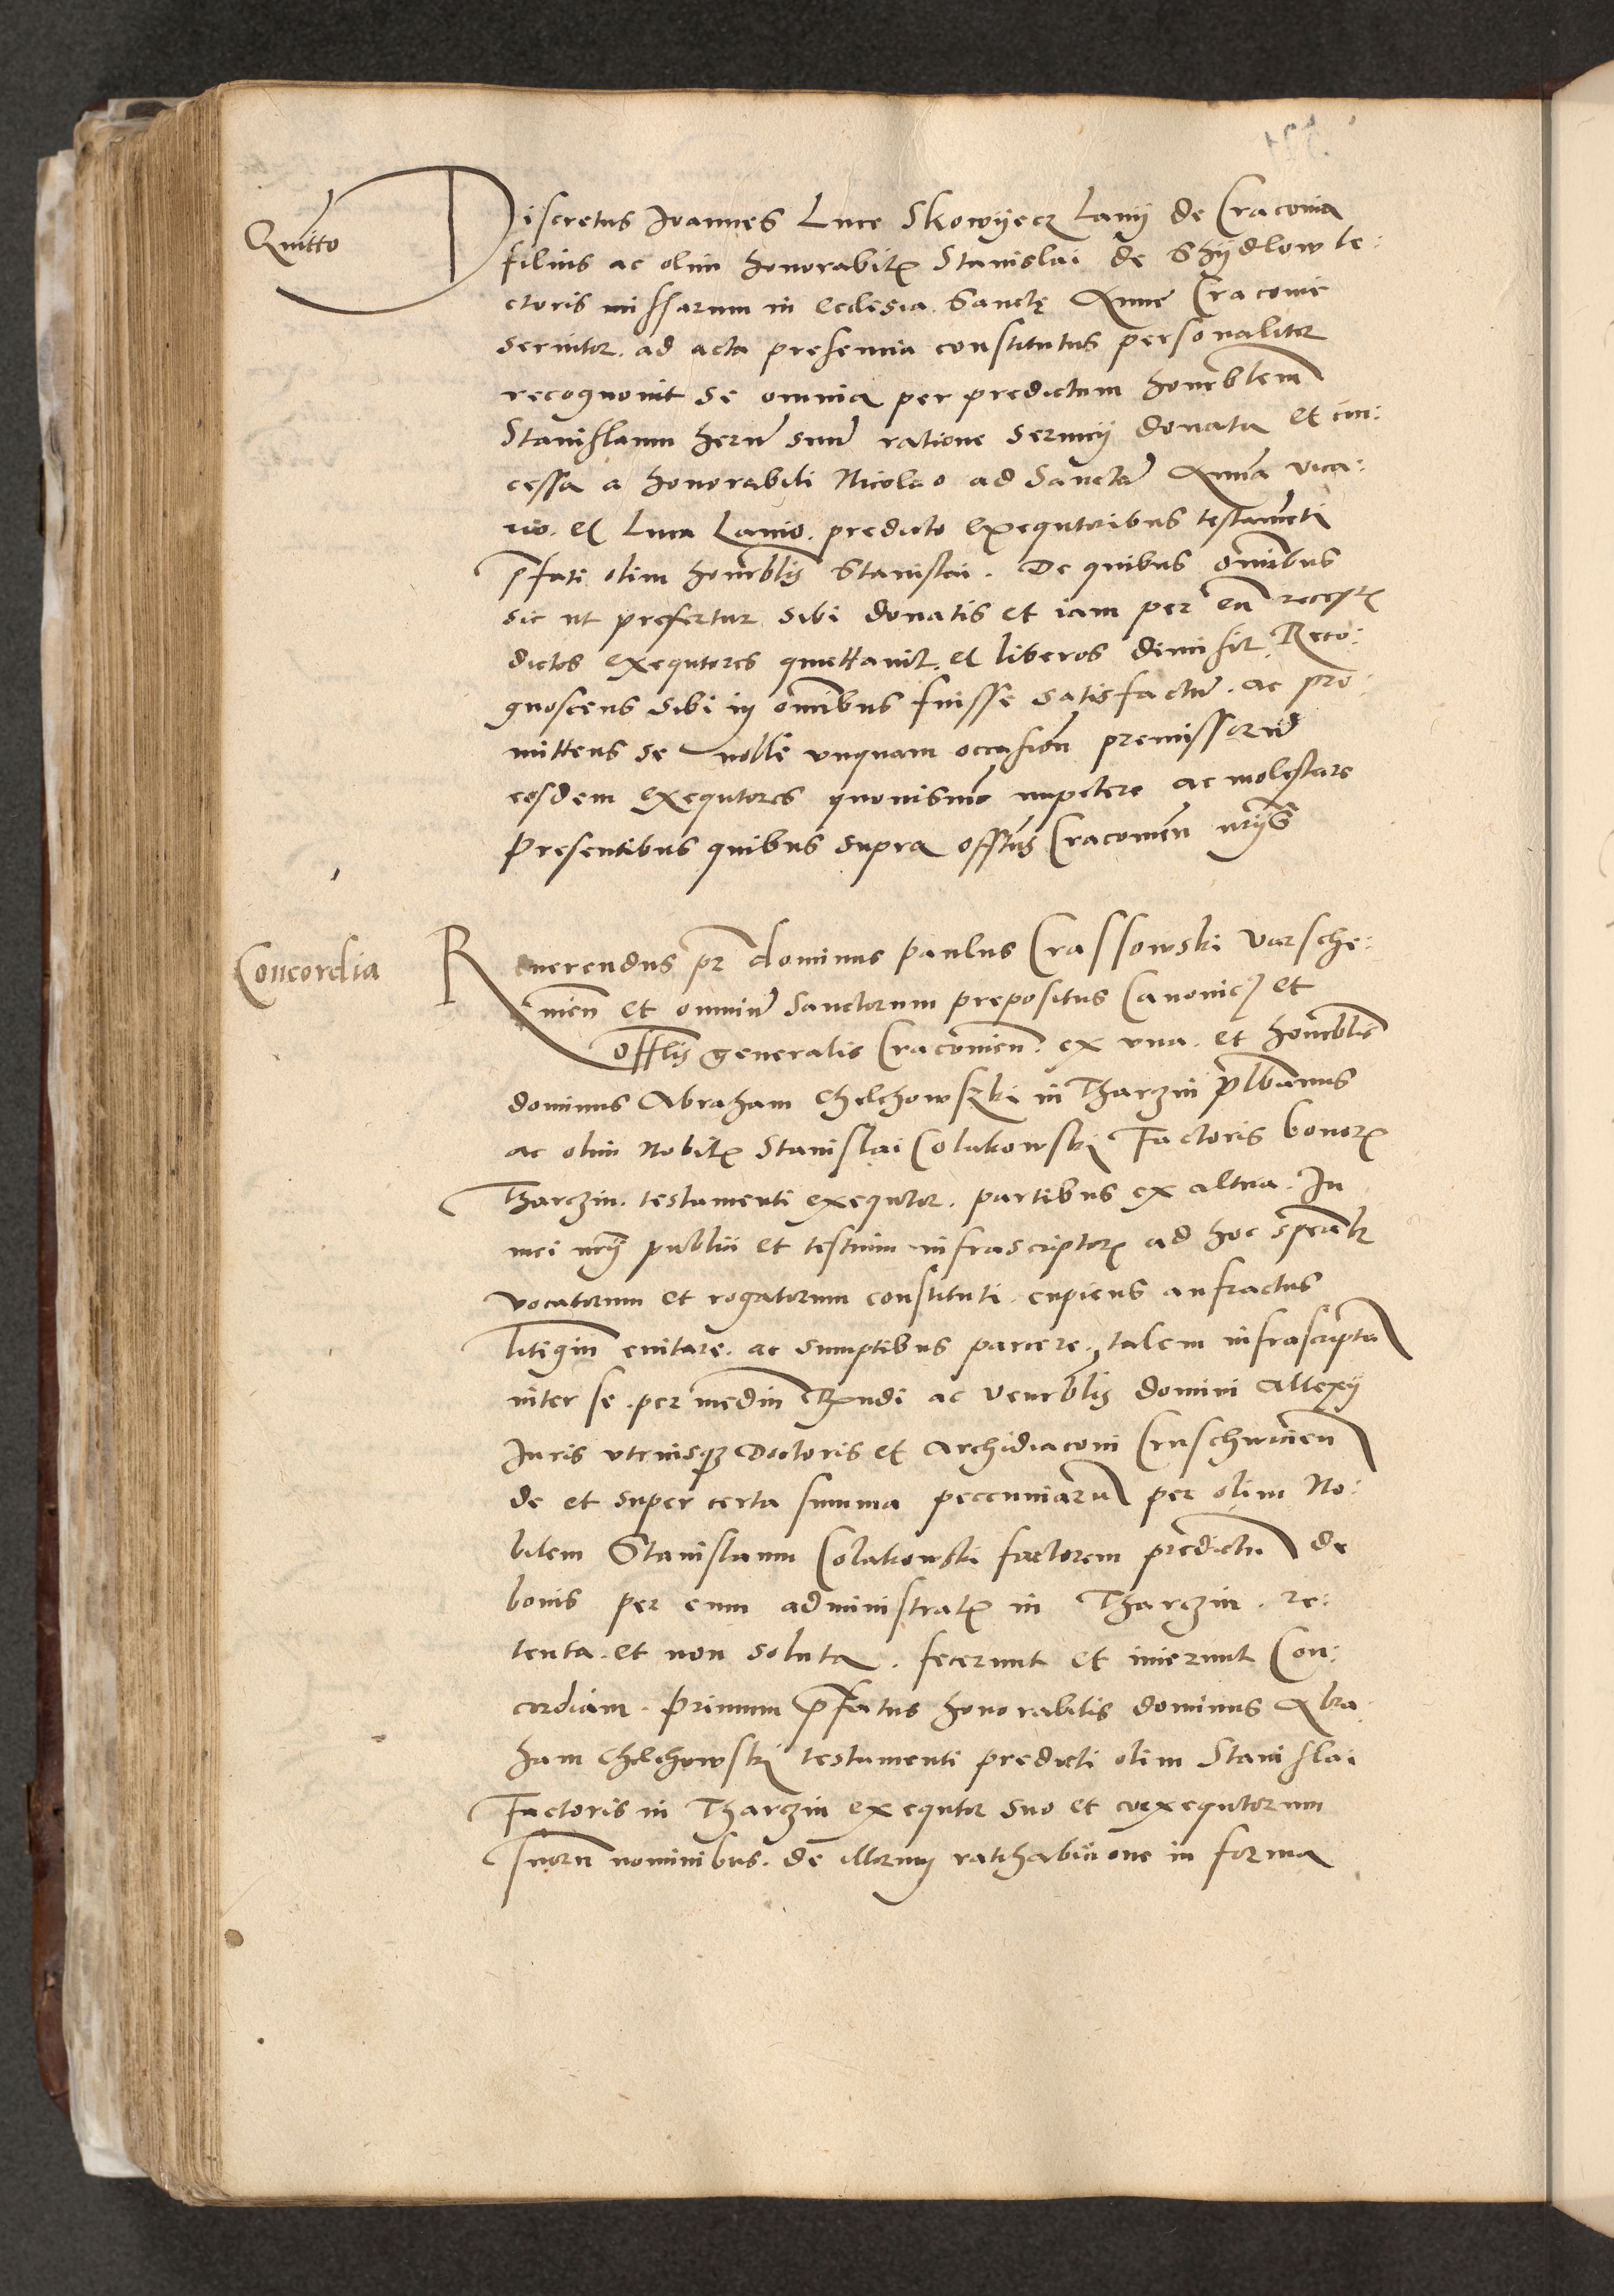 Quitto
Discretus Ioannes Luce Skowyecz Lanij de Cracovia
filius ac olim honorabil Stanislai de Shydlow le:
ctoris missarum in ecclesia Sancte Anne Cracovie
servitor ad acta presencia constitutus personaliter
recognovit se omnia per predictum honorblem
Stanislaum heru suu ratione servicij donata et con:
cessa a honorabili Nicolao ad Sancta Anna vica:
rio et Luca Lanio predicto exequtoribus testamti
pfati olim honorblis Stanislai. De quibus omibus
sic ut prefertur sibi donatis et iam per eu recept
dictos exequtores quittavit et liberos dimisit Reco:
gnoscens sibi in omibus fuisse satisfactu. ac pro:
mittens se nolle unquam occasion premissorum
eosdem exequtores quovismo impetere ac molestare
Presentibus quibus supra offtus Cracovien nrijs
Concordia
Reverendus pr dominus Paulus Crassowski Varsche:
vien et omniu Sanctorum prepositus Canonic et
Offlis generalis Cracovien. ex una. et honorblis
dominus Abraham Chelchowski in Tharzin plbanus
ac olim Nobil Stanislai Colakowski Factoris bonor
Tharczin. testamenti exequtor. partibus ex altera. In
mei nrij publici et testium infrascriptor ad hoc speialr
vocatorum et rogatorum constituti cupiens anfractus
litigiu evitare. ac sumptibus parcere, talem infrascripta
inter se per mediu Rndi ac Venrblis domini Allexij
Iuris utriusq Doctoris et Archidiaconi Cruschvicien
de et super certa summa peccuniaru per olim No:
bilem Stanislaum Colakowski factorem predictu de
bonis per eum administrat in Tharczin. re:
tenta. et non soluta. fecerunt et inierunt Con:
cordiam. Primum pfatus honorabilis dominus Abra
ham Chelchowski testamenti predicti olim Stanislai
Factoris in Tharczin exequtor suo et coexequtorum
suoru nominibus. de illorum ratihabicione in forma